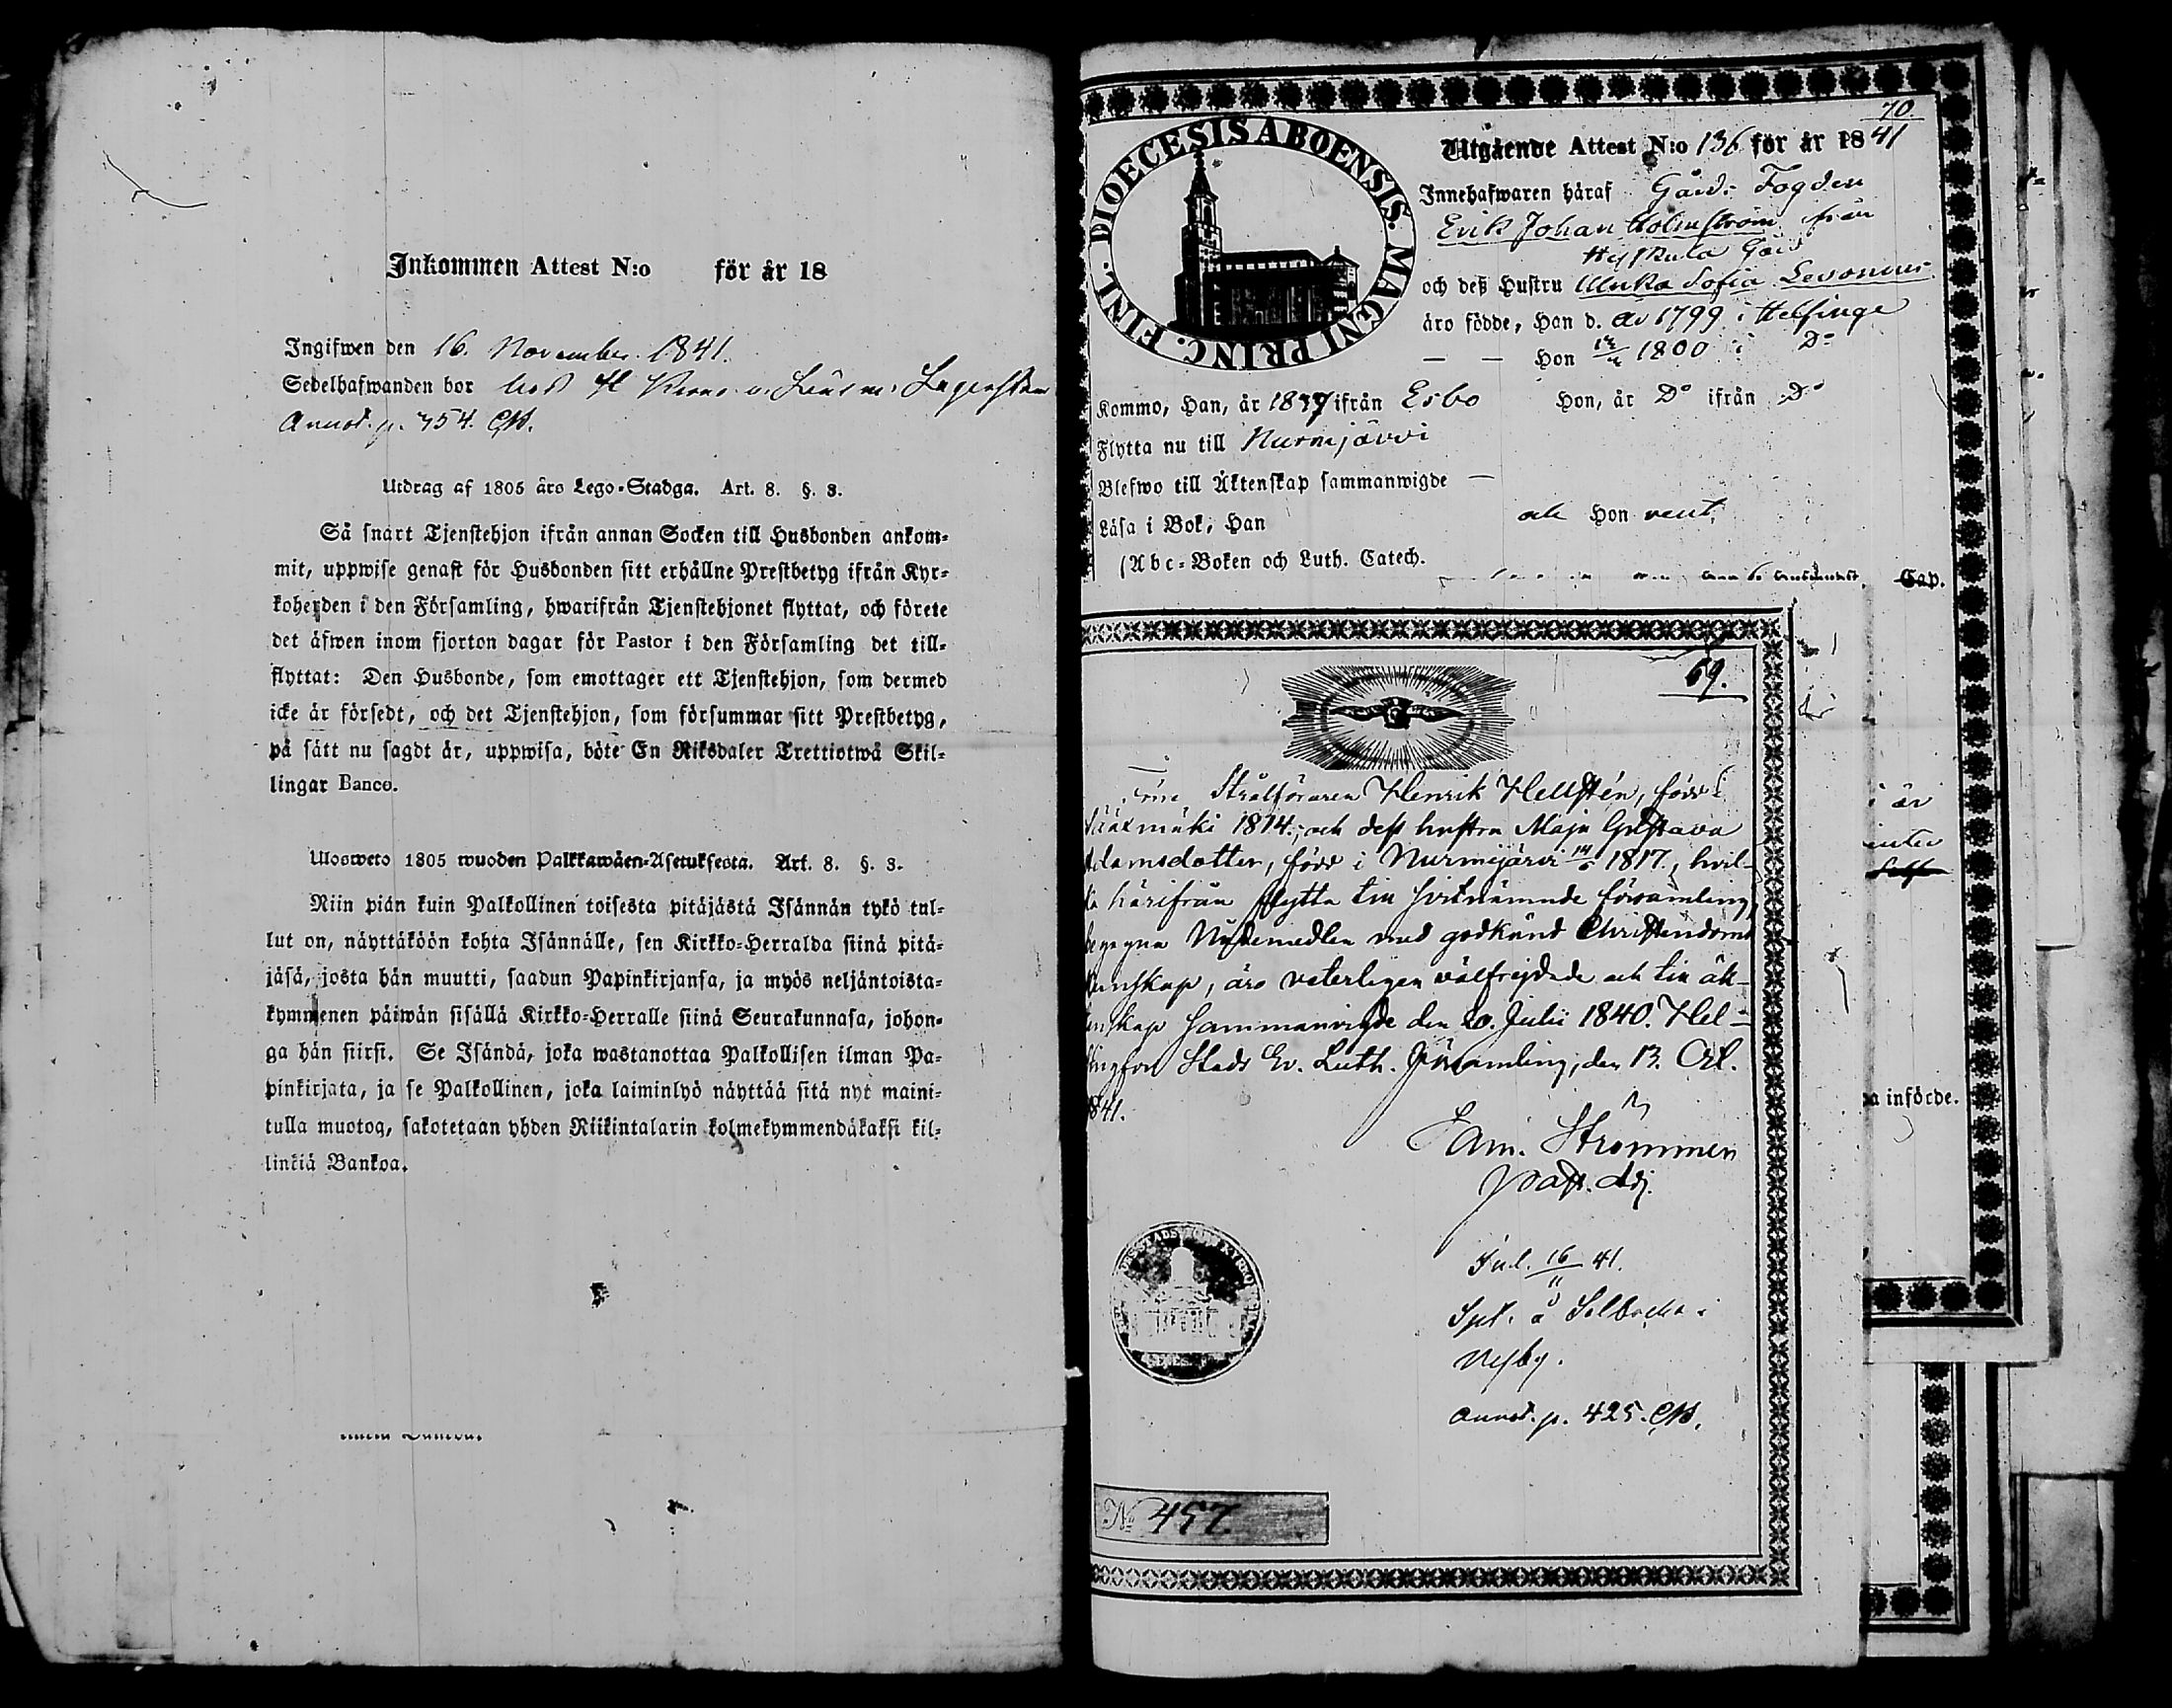 Inkommen Attest N:o för år 18
Ingifwen den 16. November 1841.
Sedelhafwanden bor hos
Annot. p. 354.
Utdrag af 1805 års Lego-Stadga. Art. 8. §. 3.
Så snart Tjenstehjon ifrån annan Socken till Husbonden ankom-
mit, uppwise genast för Husbonden sitt erhållne Prestbetyg ifrån Kyr-
koherden i den Församling, hwarifrån Tjenstehjonet flyttat, och förete
det äfwen inom fjorton dagar för Pastor i den Församling det till-
flyttat: Den Husbonde, som emottager ett Tjenstehjon, som dermed
icke är försedt, och det Tjenstehjon, som försummar sitt Prestbetyg,
på sätt nu sagdt är, uppwisa, böte En Riksdaler Trettiotwå Skil-
lingar Banco.
Ulosweto 1805 wuoden Palkkawäen-Asetuksesta. Art. 8. §. 3.
Niin piän kuin Palkollinen toisesta pitäjästä Isännän tykö tul-
lut on, näyttäköön kohta Isännälle, sen Kirkko-Herralda siinä pitä-
jäsä, josta hän muutti, saadun Papinkirjansa, ja myös neljäntoista-
kymmenen päiwän sisällä Kirkko-Herralle siinä Seurakunnasa, johon-
ga hän siirsi. Se Isändä, joka wastanottaa Palkollisen ilman Pa-
pinkirjata, ja se Palkollinen, joka laiminlyö näyttää sitä nyt maini-
tulla muotoa, sakotetaan yhden Riikintalarin kolmekymmendäkaksi kil-
linkiä Bankoa.
DIOECESIS ABOENSIS. MAGNI PRINC. FINL.
70.
Utgående Attest N:o 136 för år 1841
Innehafwaren häraf Gårds Fogden
Erik Johan Holmström från
Gård
och deß Hustru Ulrika Sofia Levonius
äro födde, Han d. År 1799 i Helsinge
— — Hon 1800 i Do
Kommo, Han, år 1837 ifrån Esbo Hon, år Do ifrån Do
Flytta nu till Nurmijärvi
Blefwo till Äktenskap sammanwigde —
Läsa i Bok, Han och Hon rent,
(Abc-Boken och Luth. Catech.
Cap.
69.
Henrik Hellstén, född i
1814, och dess hustru Maja Gustava
Adamsdotter, född i Nurmijärvi 1817, hvil-
ka härifrån flytta till sistnämnde församling,
begagna Nådemedlen med godkänd Christendoms
kunskap, äro veterligen välfrejdade och till äk-
tenskap sammanvigde den 20. Julii 1840. Hel-
singfors Stads Ev. Luth. Församling, den 13. Oct.
1841.
Sam. Strömmer
Past. Adj.
Inl. 16/11 41.
Annot. p. 425.
No 457.
införde.